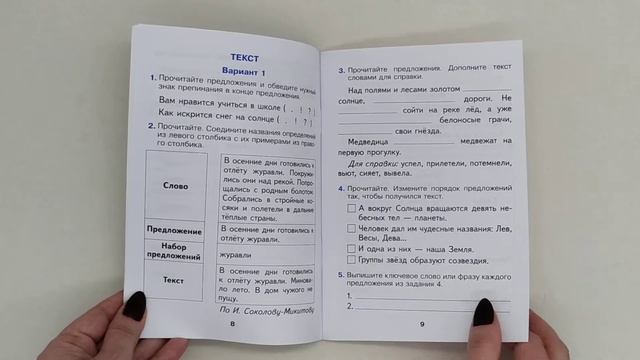 ТЕКСТ
Вариант 1
1. Прочитайте предложения и обведите нужный
знак препинания в конце предложения.
Вам нравится учиться в школе ( . ! ? )
Как искрится снег на солнце ( . ! ? )
2. Прочитайте. Соедините названия определений
из левого столбика с их примерами из право-
го столбика.
Слово
В осенние дни готовились к
отлёту журавли. Покружи-
лись они над рекой. Попро-
щались с родным болотом.
Собрались в стройные ко-
сяки и полетели в дальние
тёплые страны.
Предложение
В осенние дни готовились к
отлёту журавли.
Набор
предложений
журавли
Текст
В осенние дни готовились
к отлёту журавли. Минова-
ло лето. В дом чужого не
пущу.
По И. Соколову-Микитову
8
3. Прочитайте предложения. Дополните текст
словами для справки.
Над полями и лесами золотом
солнце, дороги. Не
сойти на реке лёд, а уже
белоносые грачи,
свои гнёзда.
Медведица медвежат на
первую прогулку.
Для справки: успел, прилетели, потемнели,
вьют, сияет, вывела.
4. Прочитайте. Измените порядок предложений
так, чтобы получился текст.
А вокруг Солнца вращаются девять не-
бесных тел — планеты.
Человек дал им чудесные названия: Лев,
Весы, Дева...
И одна из них — наша Земля.
Группы звёзд образуют созвездия.
5. Выпишите ключевое слово или фразу каждого
предложения из задания 4.
1.
2.
9